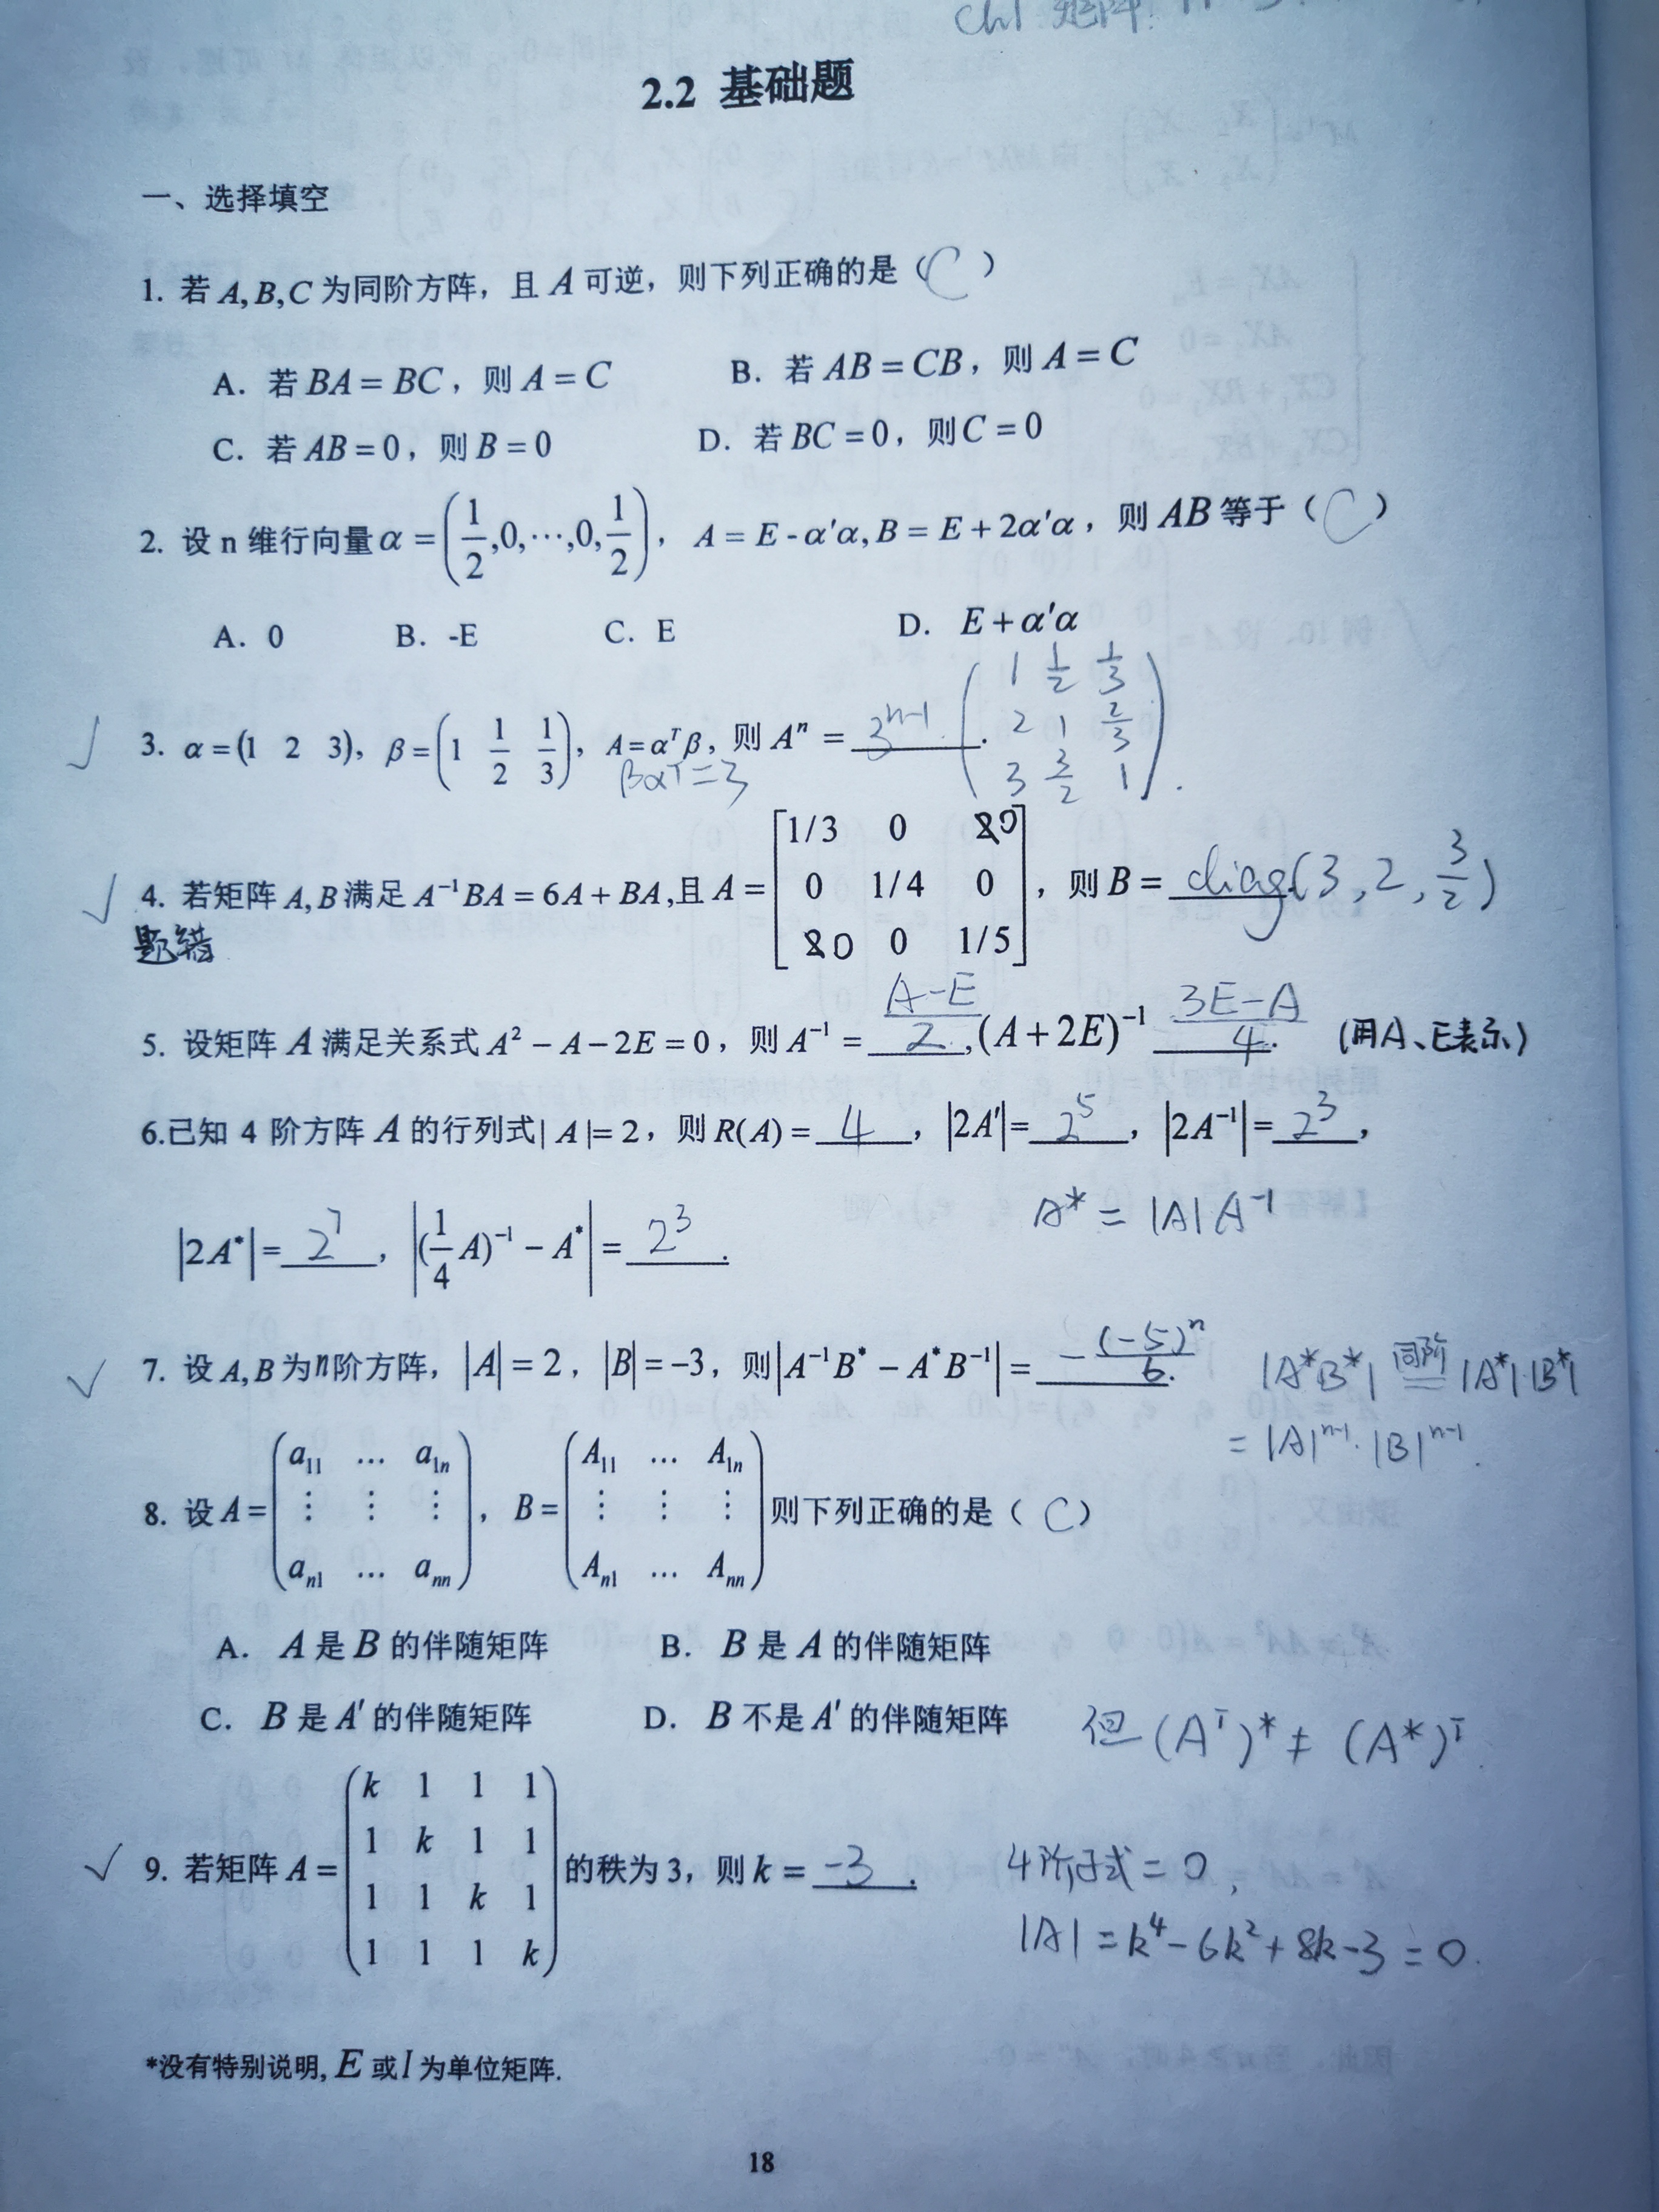 ch1 矩阵
2.2 基础题
一、选择填空
1. 若 A,B,C 为同阶方阵，且 A 可逆，则下列正确的是（ C ）
A. 若 BA = BC，则 A = C B. 若 AB = CB，则 A = C
C. 若 AB = 0，则 B = 0 D. 若 BC = 0，则 C = 0
2. 设 n 维行向量 α = (1/2,0,⋯,0,1/2)，A = E - α'α, B = E + 2α'α，则 AB 等于（ C ）
A. 0 B. -E C. E D. E + α'α
3. α = (1 2 3)，β = (1 1/2 1/3)，A = αᵀβ，则 Aⁿ = 3ⁿ⁻¹. (1 1/2 1/3; 2 1 2/3; 3 3/2 1).
βαᵀ = 3
4. 若矩阵 A,B 满足 A⁻¹BA = 6A + BA,且 A = [1/3 0 0; 0 1/4 0; 0 0 1/5]，则 B = diag(3,2,3/2)
题错
5. 设矩阵 A 满足关系式 A² − A − 2E = 0，则 A⁻¹ = (A−E)/2,(A + 2E)⁻¹ (3E−A)/4. (用A、E表示)
6.已知 4 阶方阵 A 的行列式| A |= 2，则 R(A) = 4，|2A'| = 2⁵，|2A⁻¹| = 2³，
|2A*| = 2⁷，|(1/4 A)⁻¹ − A*| = 2³.
A* = |A|A⁻¹
7. 设 A,B 为n阶方阵，|A| = 2，|B| = −3，则|A⁻¹B* − A*B⁻¹| = −(−5)ⁿ/6.
|A*B*| 同阶= |A*|·|B*|
= |A|ⁿ⁻¹·|B|ⁿ⁻¹.
8. 设 A = (a₁₁ … a₁ₙ; ⋮ ⋮ ⋮; aₙ₁ … aₙₙ)，B = (A₁₁ … A₁ₙ; ⋮ ⋮ ⋮; Aₙ₁ … Aₙₙ) 则下列正确的是（ C ）
A. A 是 B 的伴随矩阵 B. B 是 A 的伴随矩阵
C. B 是 A' 的伴随矩阵 D. B 不是 A' 的伴随矩阵
但 (Aᵀ)* ≠ (A*)ᵀ.
9. 若矩阵 A = (k 1 1 1; 1 k 1 1; 1 1 k 1; 1 1 1 k) 的秩为 3，则 k = -3.
4阶子式 = 0,
|A| = k⁴ − 6k² + 8k − 3 = 0.
*没有特别说明, E 或 I 为单位矩阵.
18